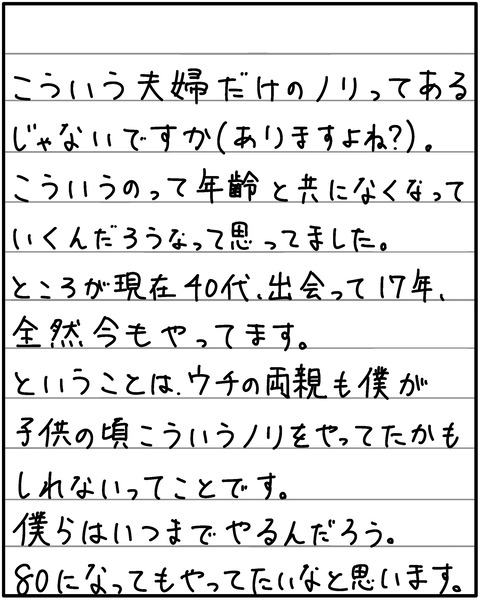 こういう夫婦だけのノリってある
じゃないですか(ありますよね?)。
こういうのって年齢と共になくなって
いくんだろうなって思ってました。
ところが現在40代、出会って17年、
全然今もやってます。
ということは、ウチの両親も僕が
子供の頃こういうノリをやってたかも
しれないってことです。
僕らはいつまでやるんだろう。
80になってもやってたいなと思います。